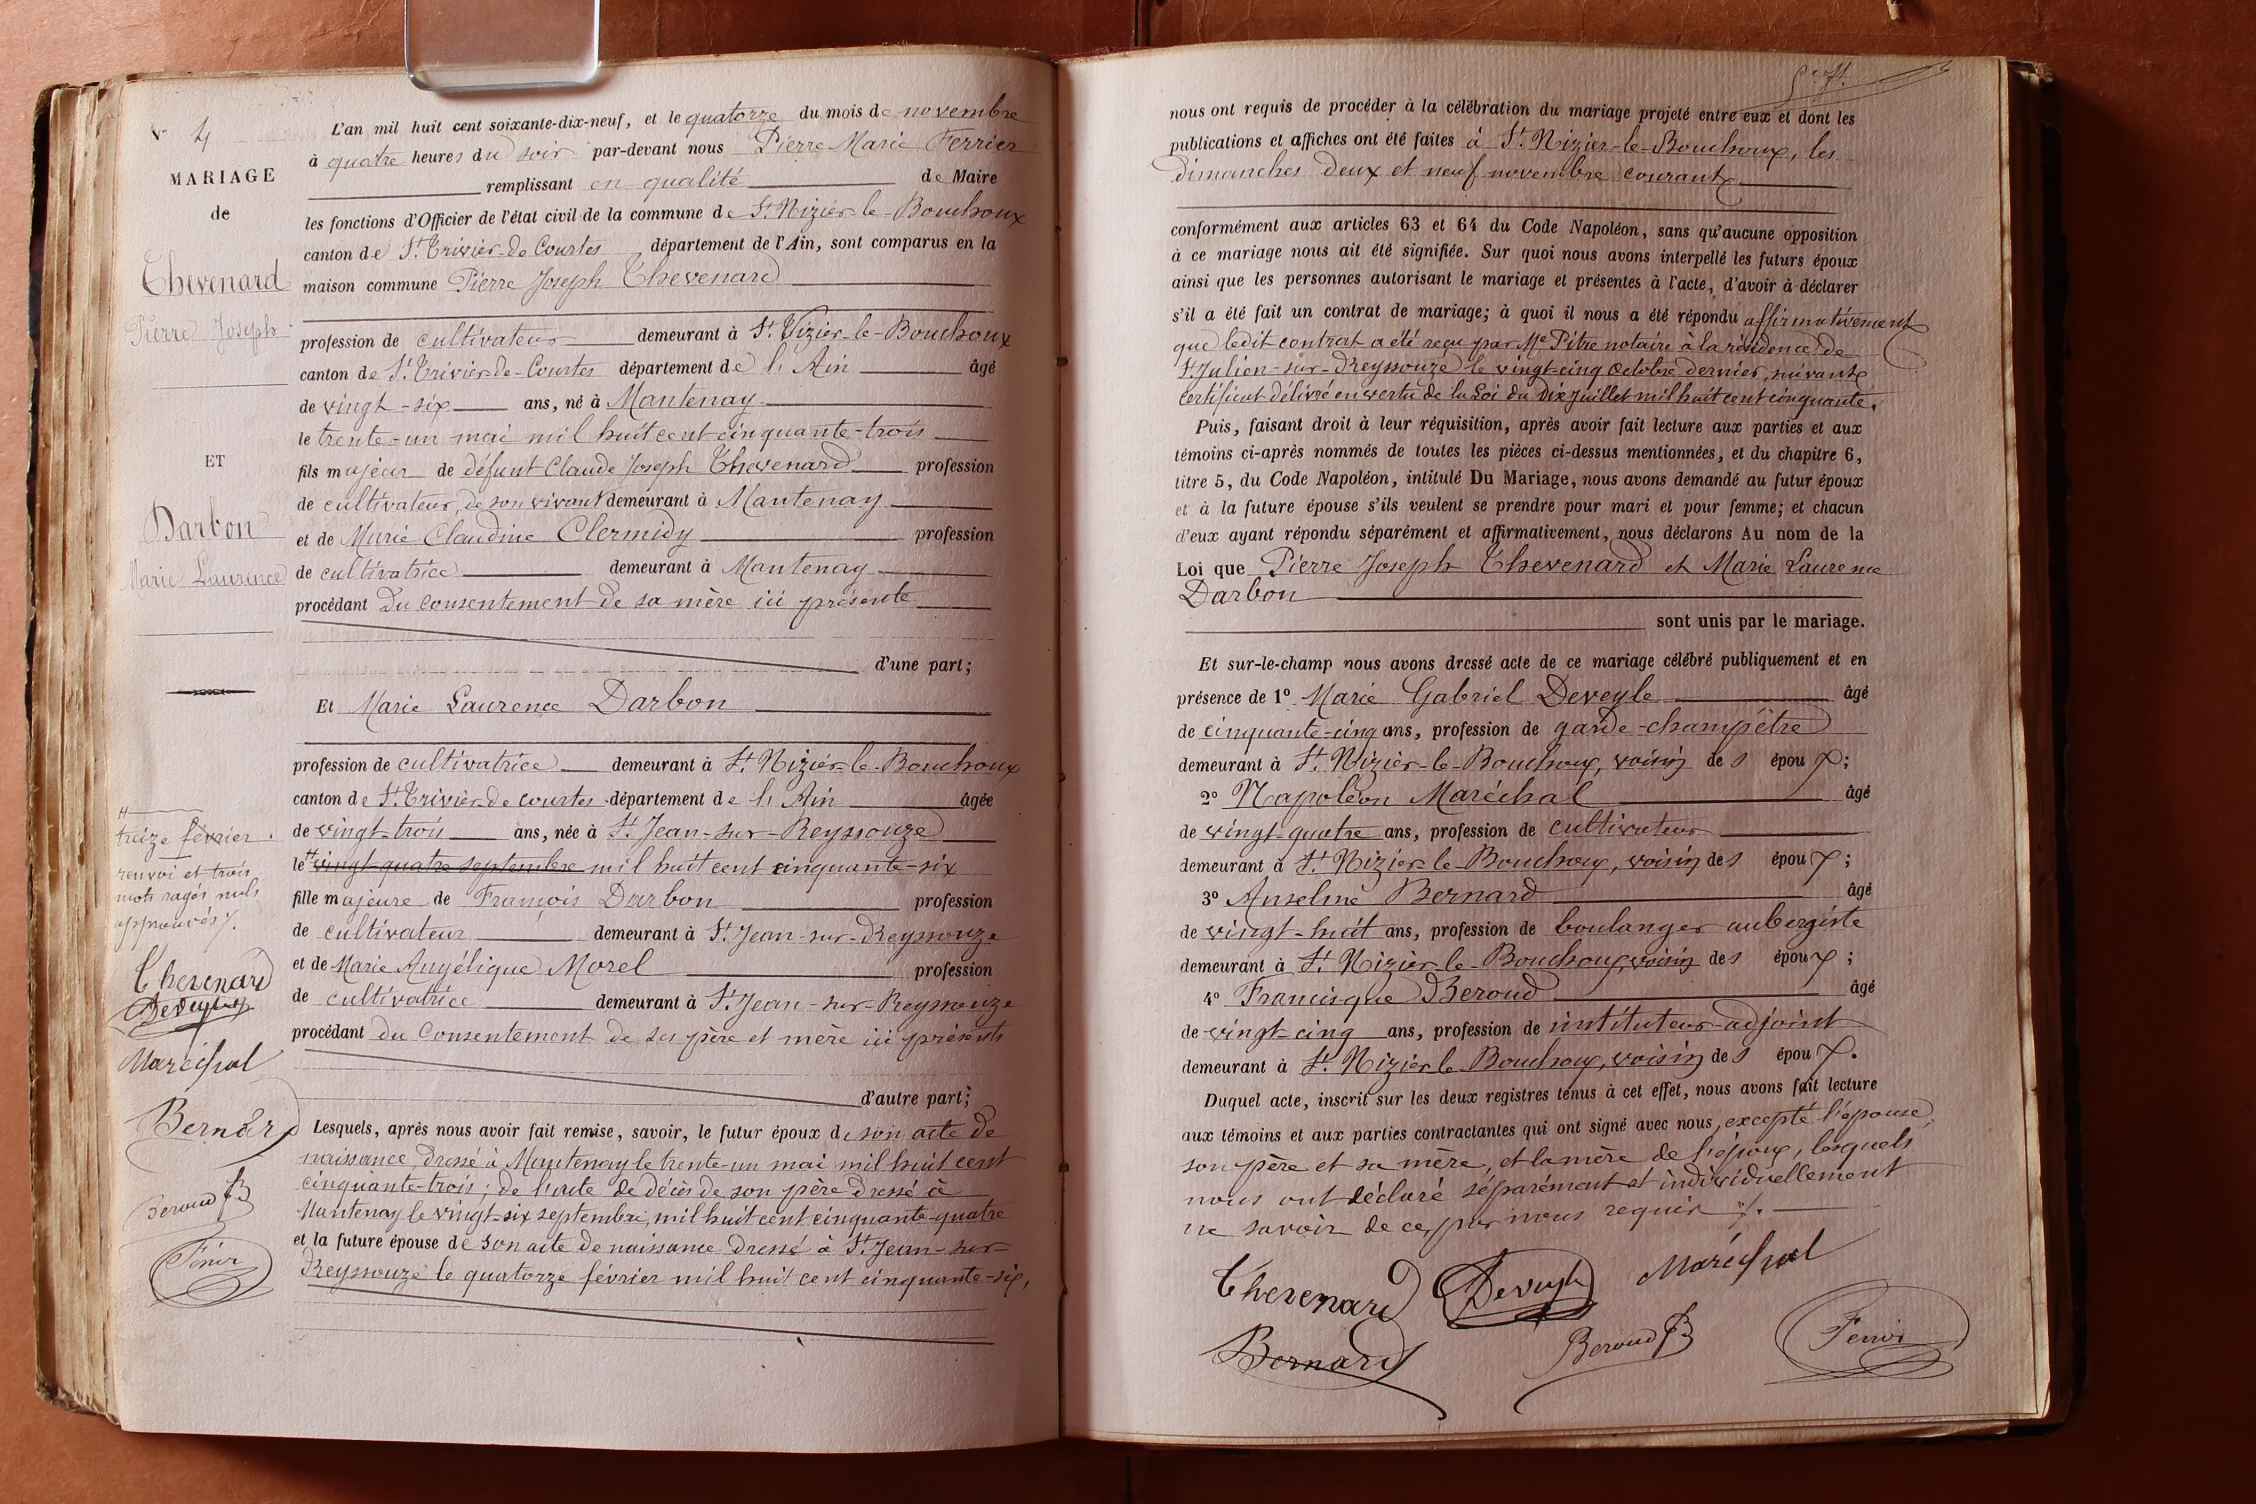 N° 4
MARIAGE
de
Thevenard
Pierre Joseph
ET
Darbon
Marie Laurence
H
treize février.
renvoi et trois
mots rayés nuls
approuvés
Thevenard
Deveyle
Maréchal
Bernard
Beroud
L'an mil huit cent soixante-dix-neuf, et le quatorze du mois de novembre
à quatre heures du soir par-devant nous Pierre Marie Ferrier
remplissant en qualité de Maire
les fonctions d'Officier de l'état civil de la commune de St Nizier-le-Bouchoux
canton de St Trivier-de-Courtes département de l'Ain, sont comparus en la
maison commune Pierre Joseph Thevenard
profession de cultivateur demeurant à St Nizier-le-Bouchoux
canton de St Trivier-de-Courtes département de l'Ain âgé
de vingt-six ans, né à Mantenay
le trente-un mai mil huit cent cinquante-trois
fils majeur de défunt Claude Joseph Thevenard profession
de cultivateur, de son vivant demeurant à Mantenay
et de Marie Claudine Clermidy profession
de cultivatrice demeurant à Mantenay
procédant du consentement de sa mère ici présente
d'une part;
Et Marie Laurence Darbon
profession de cultivatrice demeurant à St Nizier-le-Bouchoux
canton de St Trivier-de-courtes département de l'Ain âgée
de vingt-trois ans, née à St Jean-sur-Reyssouze
le H vingt-quatre septembre mil huit cent cinquante-six
fille majeure de François Darbon profession
de cultivateur demeurant à St Jean-sur-Reyssouze
et de Marie Angélique Morel profession
de cultivatrice demeurant à St Jean-sur-Reyssouze
procédant du consentement de ses père et mère ici présents
d'autre part;
Lesquels, après nous avoir fait remise, savoir, le futur époux de son acte de
naissance dressé à Mantenay le trente-un mai mil huit cent
cinquante-trois; de l'acte de décès de son père dressé à
Mantenay le vingt-six septembre mil huit cent cinquante-quatre
et la future épouse de son acte de naissance dressé à St Jean-sur-
Reyssouze le quatorze février mil huit cent cinquante-six,
nous ont requis de procéder à la célébration du mariage projeté entre eux et dont les
publications et affiches ont été faites à St Nizier-le-Bouchoux, les
dimanches deux et neuf novembre courant
conformément aux articles 63 et 64 du Code Napoléon, sans qu'aucune opposition
à ce mariage nous ait été signifiée. Sur quoi nous avons interpellé les futurs époux
ainsi que les personnes autorisant le mariage et présentes à l'acte, d'avoir à déclarer
s'il a été fait un contrat de mariage; à quoi il nous a été répondu affirmativement
que ledit contrat a été reçu par Me Pitre notaire à la résidence de
St Julien-sur-Reyssouze le vingt-cinq octobre dernier, suivant
certificat délivré en vertu de la Loi du Dix juillet mil huit cent cinquante.
Puis, faisant droit à leur réquisition, après avoir fait lecture aux parties et aux
témoins ci-après nommés de toutes les pièces ci-dessus mentionnées, et du chapitre 6,
titre 5, du Code Napoléon, intitulé Du Mariage, nous avons demandé au futur époux
et à la future épouse s'ils veulent se prendre pour mari et pour femme; et chacun
d'eux ayant répondu séparément et affirmativement, nous déclarons Au nom de la
Loi que Pierre Joseph Thevenard et Marie Laurence
Darbon
sont unis par le mariage.
Et sur-le-champ nous avons dressé acte de ce mariage célébré publiquement et en
présence de 1° Marie Gabriel Deveyle âgé
de cinquante-cinq ans, profession de garde-champêtre
demeurant à St Nizier-le-Bouchoux, voisin des époux;
2° Napoléon Maréchal âgé
de vingt-quatre ans, profession de cultivateur
demeurant à St Nizier-le-Bouchoux, voisin des époux;
3° Anselme Bernard âgé
de vingt-huit ans, profession de boulanger aubergiste
demeurant à St Nizier-le-Bouchoux, voisin des époux;
4° Francisque Beroud âgé
de vingt-cinq ans, profession de instituteur-adjoint
demeurant à St Nizier-le-Bouchoux, voisin des époux.
Duquel acte, inscrit sur les deux registres tenus à cet effet, nous avons fait lecture
aux témoins et aux parties contractantes qui ont signé avec nous, excepté l'épouse,
son père et sa mère, et la mère de l'époux, lesquels
nous ont déclaré séparément et individuellement
ne savoir de ce, par nous requis
Thevenard Deveyle Maréchal
Bernard Beroud